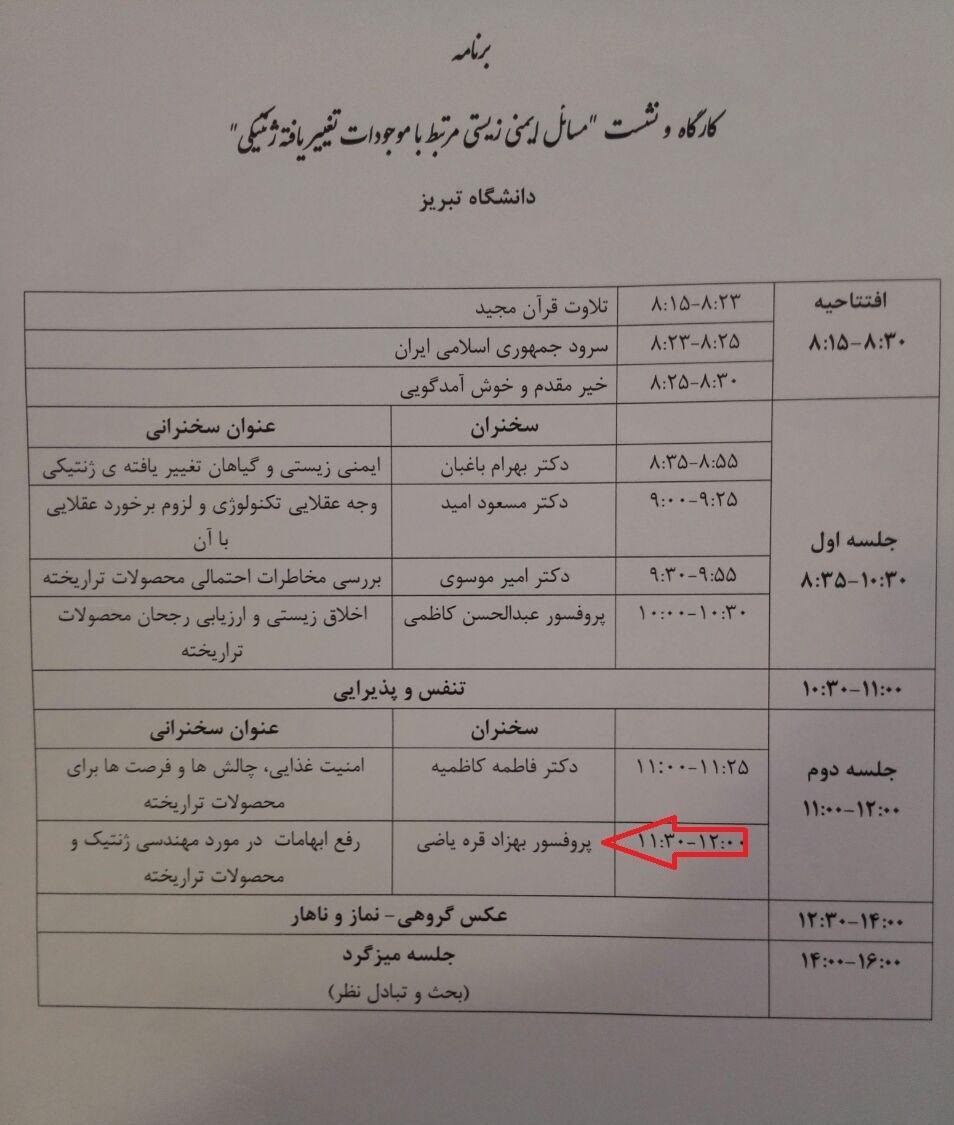 برنامه
کارگاه و نشست "مسائل ایمنی زیستی مرتبط با موجودات تغییر یافته ژنتیکی"
دانشگاه تبریز
افتتاحیه
۸:۱۵-۸:۳۰
۸:۱۵-۸:۲۳ تلاوت قرآن مجید
۸:۲۳-۸:۲۵ سرود جمهوری اسلامی ایران
۸:۲۵-۸:۳۰ خیر مقدم و خوش آمدگویی
جلسه اول
۸:۳۵-۱۰:۳۰
سخنران عنوان سخنرانی
۸:۳۵-۸:۵۵ دکتر بهرام باغبان ایمنی زیستی و گیاهان تغییر یافته ی ژنتیکی
۹:۰۰-۹:۲۵ دکتر مسعود امید وجه عقلایی تکنولوژی و لزوم برخورد عقلایی
با آن
۹:۳۰-۹:۵۵ دکتر امیر موسوی بررسی مخاطرات احتمالی محصولات تراریخته
۱۰:۰۰-۱۰:۳۰ پروفسور عبدالحسن کاظمی اخلاق زیستی و ارزیابی رجحان محصولات
تراریخته
۱۰:۳۰-۱۱:۰۰ تنفس و پذیرایی
جلسه دوم
۱۱:۰۰-۱۲:۰۰
سخنران عنوان سخنرانی
۱۱:۰۰-۱۱:۲۵ دکتر فاطمه کاظمیه امنیت غذایی، چالش ها و فرصت ها برای
محصولات تراریخته
۱۱:۳۰-۱۲:۰۰ پروفسور بهزاد قره یاضی رفع ابهامات در مورد مهندسی ژنتیک و
محصولات تراریخته
۱۲:۳۰-۱۴:۰۰ عکس گروهی- نماز و ناهار
۱۴:۰۰-۱۶:۰۰ جلسه میزگرد
(بحث و تبادل نظر)